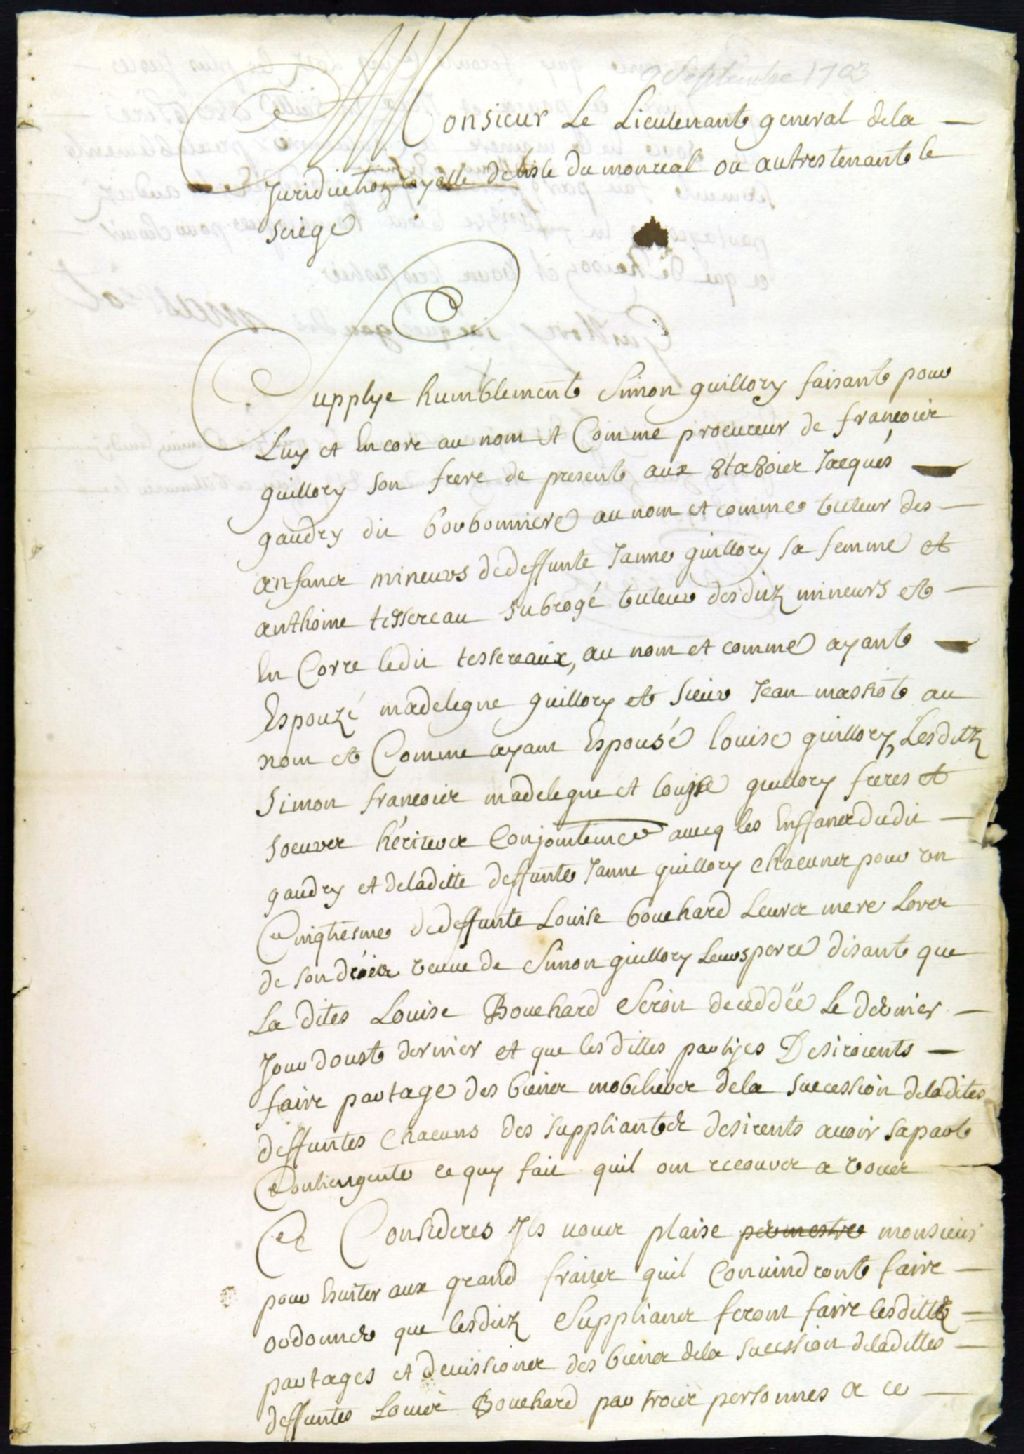 9 Septembre 1703
Monsieur Le Lieutenant general dela
Juridiction royalle de lisle du monreal ou autres tenants le
siege
Supplye humblement Simon guillory faisant pour
Luy et Encore au nom et Comme procureur de françois
guillory son frere de present aux 8ta8ois Jacques
gaudry dit bourbonniere au nom et comme tuteur des
anfans mineurs de deffunte Janne guillory sa femme et
anthoine tessereau subrogé tuteur desditz mineurs et
En Corre ledit tessereaux, au nom et comme ayant
Espouzé madelegne guillory et sieur Jean maskot au
nom et Comme ayant Espousé louise guillory, Lesditz
Simon françois madelegne et louise guillory freres et
soeurs héritiers Conjointement avecq les Enffans dudit
gaudry et deladitte deffunte Janne guillory chacuns pour un
Cinqhesme de deffunte Louise bouchard Leurs mere Lors
de son décès veuve de Simon guillory Leurs perre disant que
La dites Louise Bouchard seroit deceddëe Le dernier
Jour doust dernier et que lesdittes partyes Desiroients
faire partage des biens mobeliers dela succession deladites
deffuntes chacuns des suppliants desirents avoir sa part
Contiengente ce quy fait quil ont recouvrs a vous
Ce Consideres Jls vous plaise permestre monsieur
pour Esviter aux grand fraises quil Conviendront faire
ordonner que lesditz Supplians feront faire lesditts
partages et devissions des biens dela succession deladittes
deffuntes Louise Bouchard par trois personnes a ce